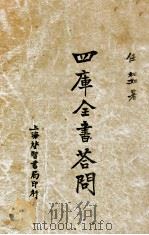 任松如著
四庫全書答問
上海啓智書局印行